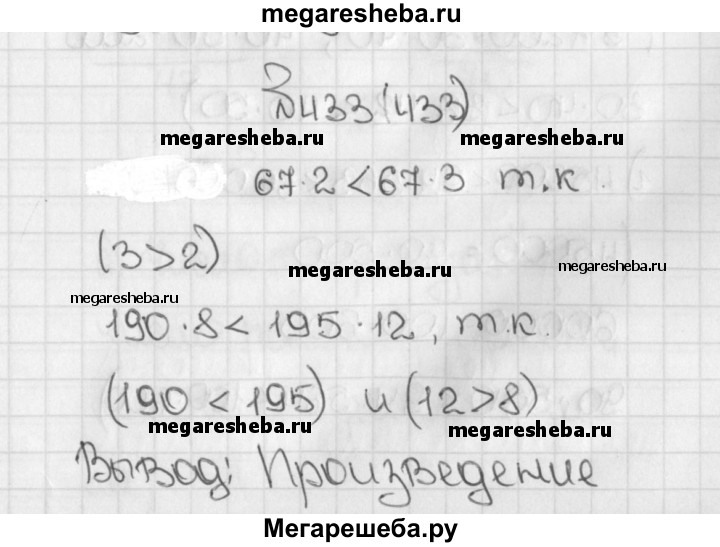 megaresheba.ru
№433 (433)
megaresheba.ru megaresheba.ru
67·2<67·3 т.к.
(3>2)
megaresheba.ru megaresheba.ru
megaresheba.ru
190·8< 195·12, т.к.
(190 < 195) и (12>8)
megaresheba.ru megaresheba.ru
Вывод: Произведение
Мегарешеба.ру